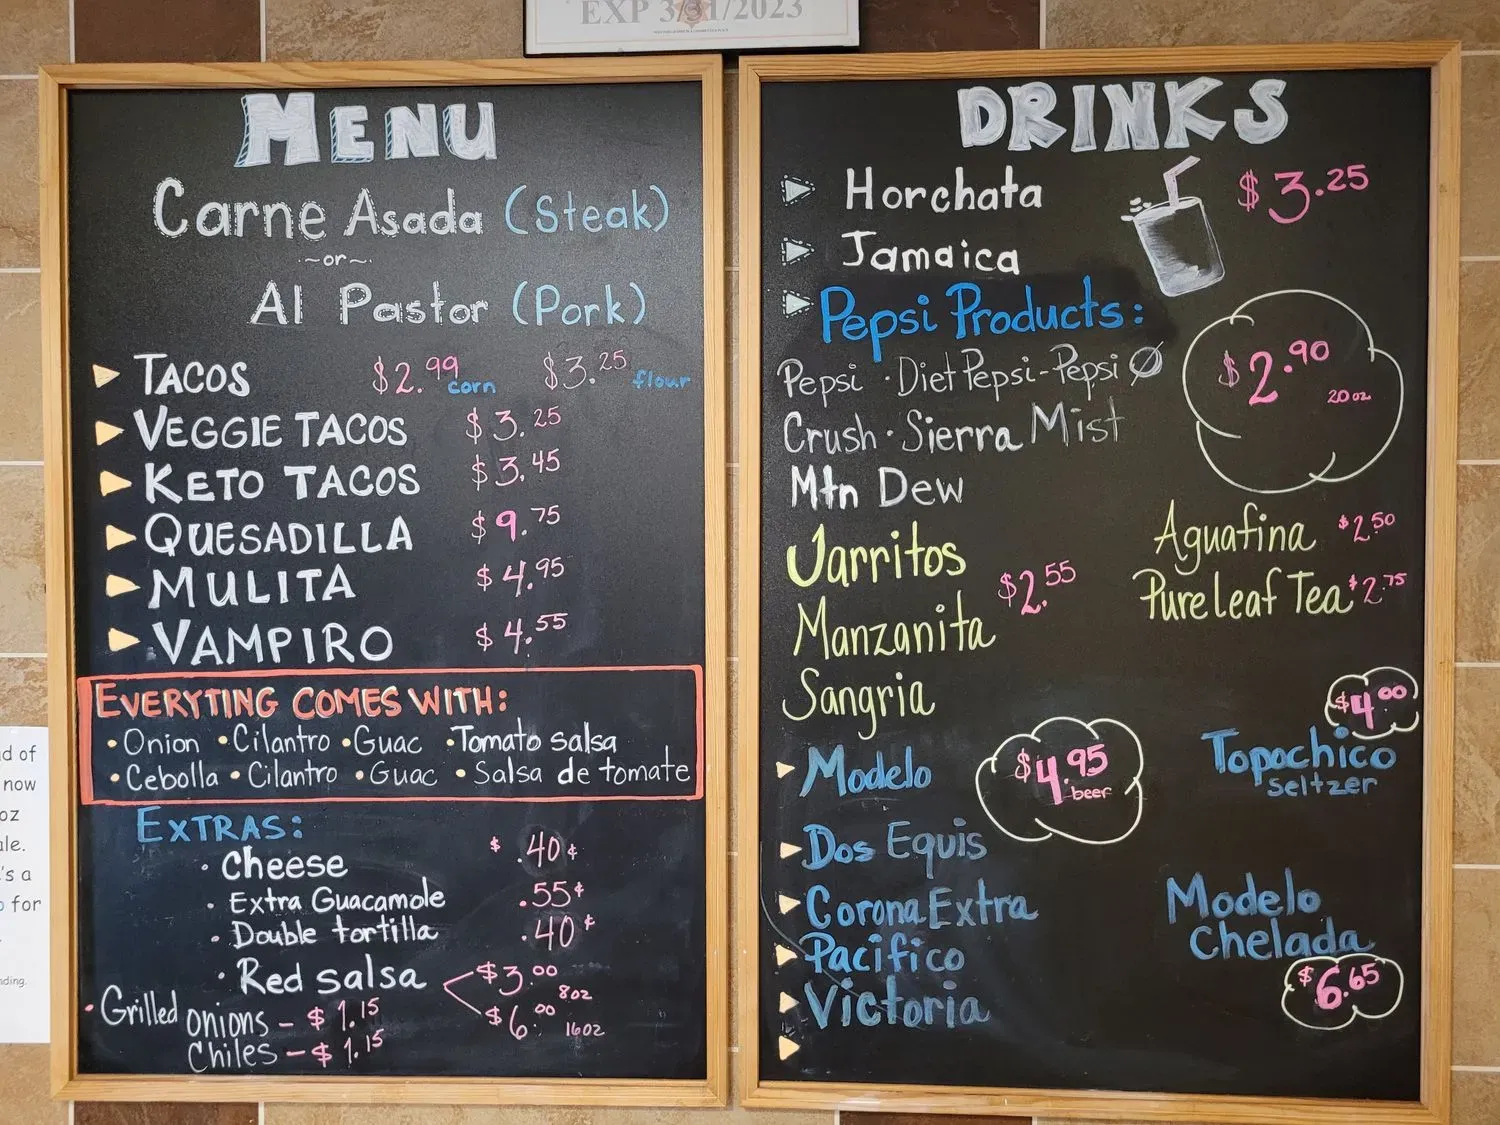 EXP 3/31/2023
MENU
Carne Asada (Steak)
~or~
Al Pastor (Pork)
TACOS $2.99 corn $3.25 flour
VEGGIE TACOS $3.25
KETO TACOS $3.45
QUESADILLA $9.75
MULITA $4.95
VAMPIRO $4.55
EVERYTING COMES WITH:
• Onion • Cilantro • Guac • Tomato salsa
• Cebolla • Cilantro • Guac • Salsa de tomate
EXTRAS:
• Cheese $ .40¢
• Extra Guacamole .55¢
• Double tortilla .40¢
• Red salsa $3.00 8oz
$6.00 16oz
• Grilled onions - $1.15
Chiles - $1.15
DRINKS
Horchata $3.25
Jamaica
Pepsi Products:
Pepsi · Diet Pepsi - Pepsi Ø
$2.90 20oz
Crush · Sierra Mist
Mtn Dew
Jarritos
Manzanita $2.55
Sangria
Aguafina $2.50
Pureleaf Tea $2.75
Modelo $4.95 beer
Dos Equis
Corona Extra
Pacifico
Victoria
$4.00
Topochico
seltzer
Modelo
Chelada
$6.65
d of
now
oz
le.
's a
for
nding.